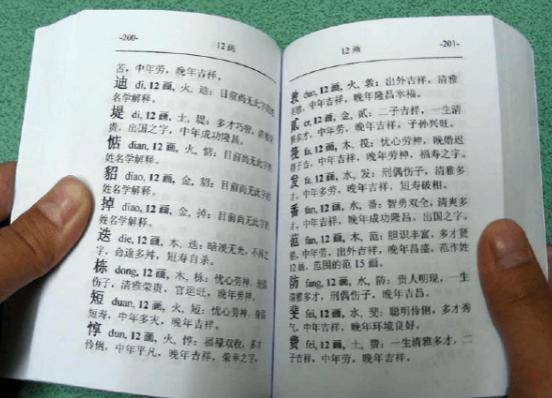 -200- 12画
苦，中年劳，晚年吉祥。
迪 di, 12 画, 火，迪：目前尚无此字的
名学解释。
堤 di, 12 画, 土，堤：多才巧智，清雅荣
贵，出国之字，中年成功隆昌。
惦 dian, 12 画, 火，惦：目前尚无此字的
姓名学解释。
貂 diao, 12 画, 金，貂：目前尚无此字的
姓名学解释。
掉 diao, 12 画, 金，掉：目前尚无此字的
姓名学解释。
迭 die, 12 画, 木，迭：
字，命途多舛，短寿自杀。
栋 dong, 12 画, 木，栋：忧心劳神，
伤子，清雅荣贵，官运旺，晚年劳神。
短 duan, 12 画, 火，短：忧心劳神，
短寿，中年多灾，晚年吉祥。
惇 dun, 12 画, 火，惇：福禄双收，多才
伶俐，中年平凡，晚年吉祥，荣幸之字。
12画 -201-
dun, 12 画, 火，敦：出外吉祥，清雅
中年吉祥，晚年隆昌幸福。
贰 er, 12 画, 金，贰：二子吉祥，一生清
雅多才，中年劳，晚年吉祥，子孙兴旺。
fa, 12 画, 木，筏：忧心劳神，晚婚迟
得子吉，中年吉祥，晚年劳神，福寿之字。
发 fa, 12 画, 水，发：刑偶伤子，清雅多
才，中年多劳，晚年吉祥，短寿破相。
番 fan, 12 画, 水，番：智勇双全，清爽多
才，中年吉祥，晚年成功隆昌，出国之字。
范 fan, 12 画, 木，范：胆识丰富，多才贤
能，中年劳，出外吉祥，晚年昌盛，范作姓
12画，范围的范 15 画。
防 fang, 12 画, 水，防：贵人明现，一生
清雅多才，刑偶伤子，晚年吉昌。
斐 fei, 12 画, 水，斐：聪明伶俐，多才秀
气，中年吉祥，晚年环境良好。
费 fei, 12 画, 土，费：一生清雅多才，二
子吉祥，中年劳，晚年吉祥。